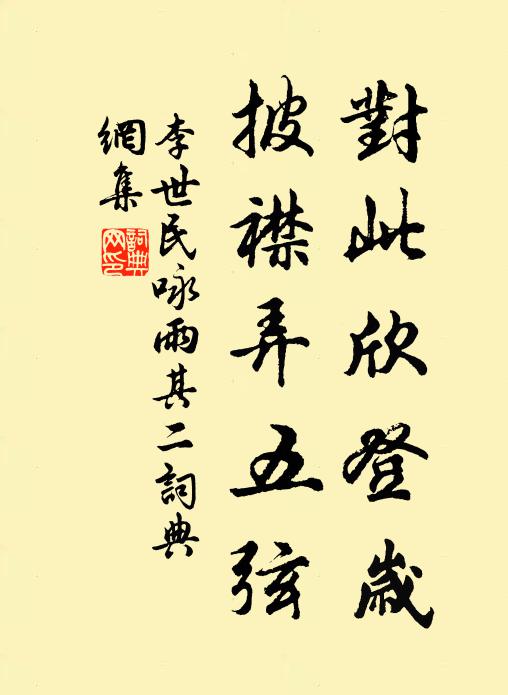 對此欣登歲
披襟弄五弦
李世民咏雨其二詞典
網集
詞典
网印